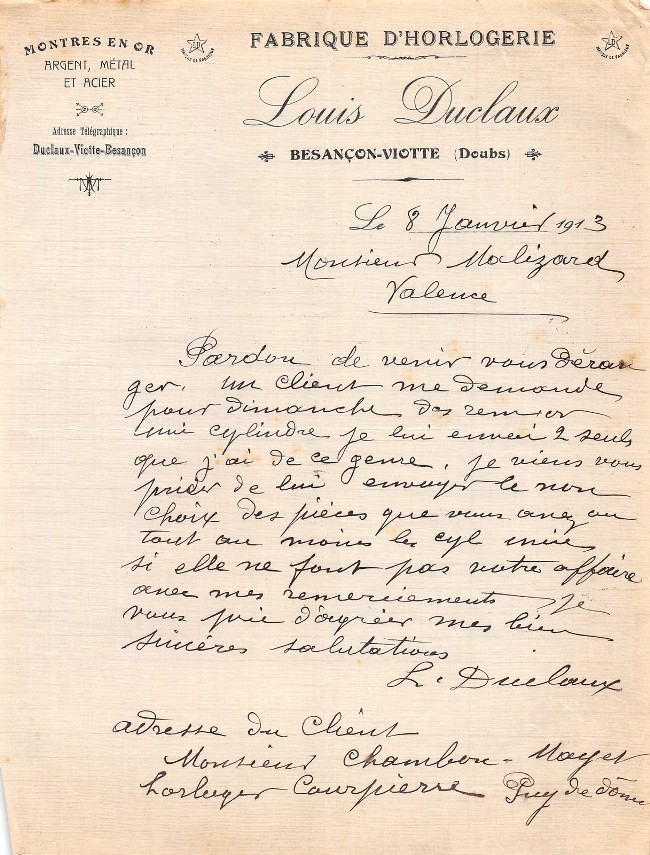 MONTRES EN OR
ARGENT, MÉTAL
ET ACIER
Adresse Télégraphique :
Duclaux-Viotte-Besançon
FABRIQUE D'HORLOGERIE
Louis Duclaux
BESANÇON-VIOTTE (Doubs)
Le 8 Janvier 1913
Monsieur Malizard
Valence
Pardon de venir vous déran
ger. un client me demande
pour dimanche des rem or
mi cylindre je lui envoi 2 seuls
que j'ai de ce genre, je viens vous
prier de lui envoyer le non
choix des pièces que vous avez ou
tout au moins les cyl
si elle ne font pas votre affaire
avec mes remerciements je
vous prie d'agréer mes bien
sincères salutations
L. Duclaux
adresse du Client
Monsieur Chambon - Mayet
horloger Courpierre Puy de dôme